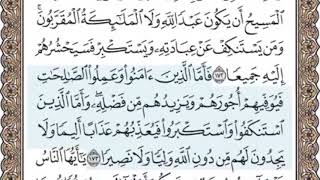 ٱلْمَسِيحُ أَن يَكُونَ عَبْدًا لِّلَّهِ وَلَا ٱلْمَلَٰٓئِكَةُ ٱلْمُقَرَّبُونَۚ
وَمَن يَسْتَنكِفْ عَنْ عِبَادَتِهِۦ وَيَسْتَكْبِرْ فَسَيَحْشُرُهُمْ
إِلَيْهِ جَمِيعًا ١٧٢ فَأَمَّا ٱلَّذِينَ ءَامَنُوا۟ وَعَمِلُوا۟ ٱلصَّٰلِحَٰتِ
فَيُوَفِّيهِمْ أُجُورَهُمْ وَيَزِيدُهُم مِّن فَضْلِهِۦۖ وَأَمَّا ٱلَّذِينَ
ٱسْتَنكَفُوا۟ وَٱسْتَكْبَرُوا۟ فَيُعَذِّبُهُمْ عَذَابًا أَلِيمًا وَلَا
يَجِدُونَ لَهُم مِّن دُونِ ٱللَّهِ وَلِيًّا وَلَا نَصِيرًا ١٧٣ يَٰٓأَيُّهَا ٱلنَّاسُ